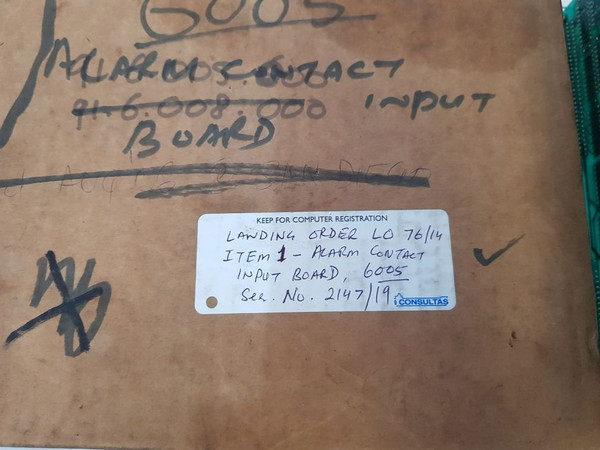 6005
ALARM CONTACT
91.6.008.000 INPUT
BOARD
KEEP FOR COMPUTER REGISTRATION
LANDING ORDER LO 76/14
ITEM 1 - ALARM CONTACT
INPUT BOARD, 6005
Ser. No. 2147/19
CONSULTAS